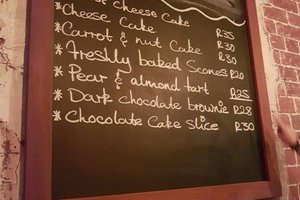 Cheese Cake R35
*Cheese Cake R30
*Carrot & nut Cake R30
*Freshly baked Scones R20
*Pear & almond tart R25
*Dark chocolate brownie R28
*Chocolate Cake Slice R30